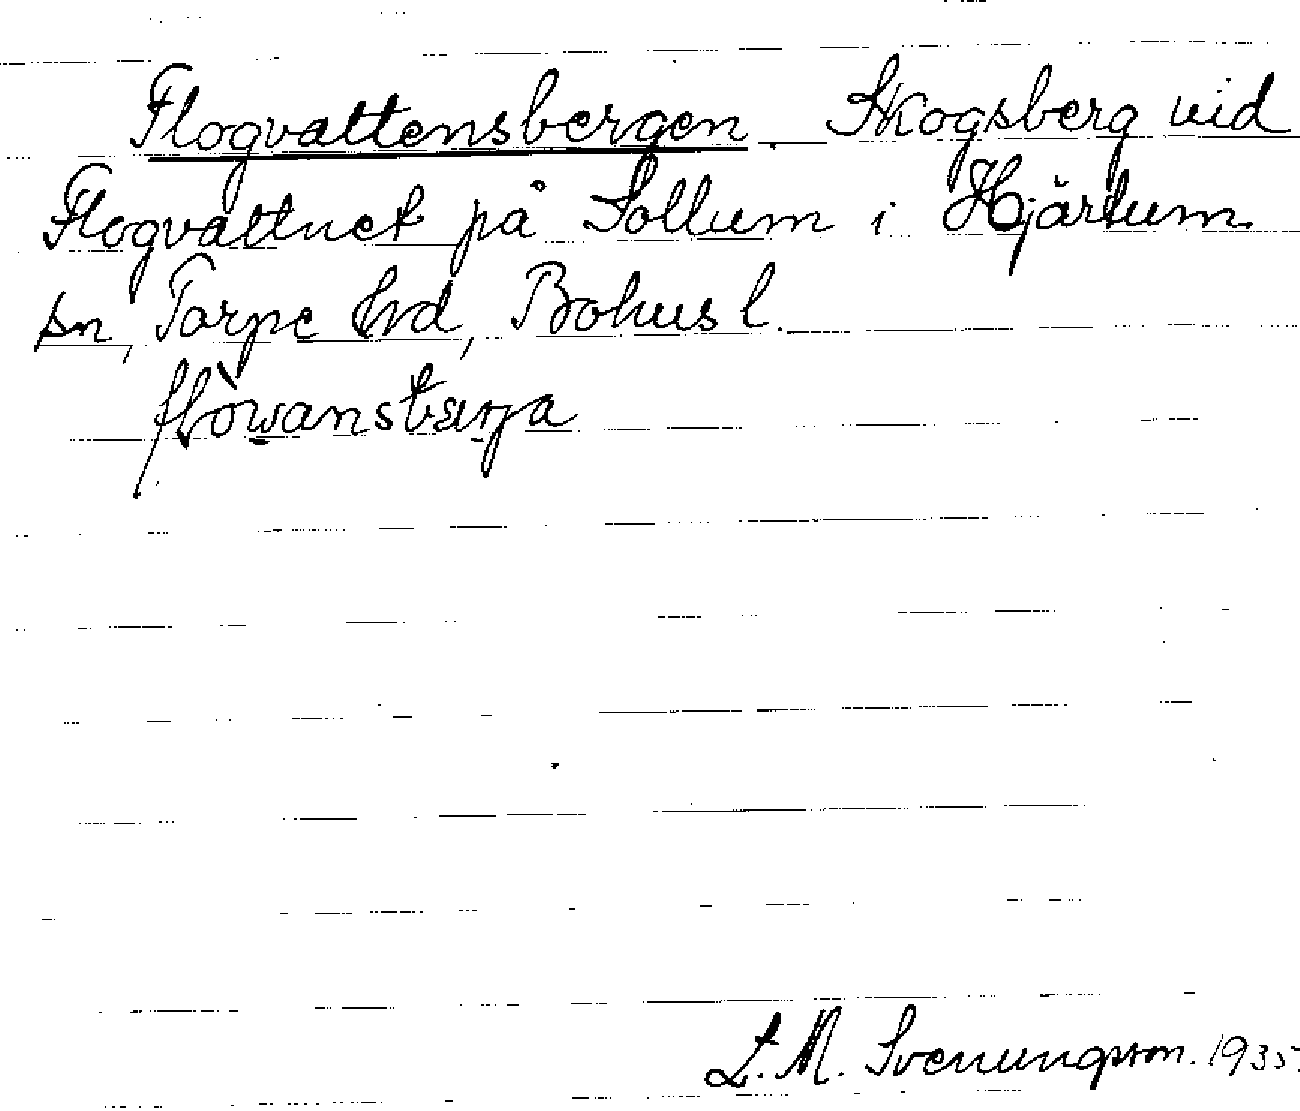 Flogvattensbergen. Skogsberg vid
Flogvattnet på Sollum i Hjärtum
sn, Torpe hrd, Bohusl.
flòwansbærja
L. M. Svenungsson. 1935.